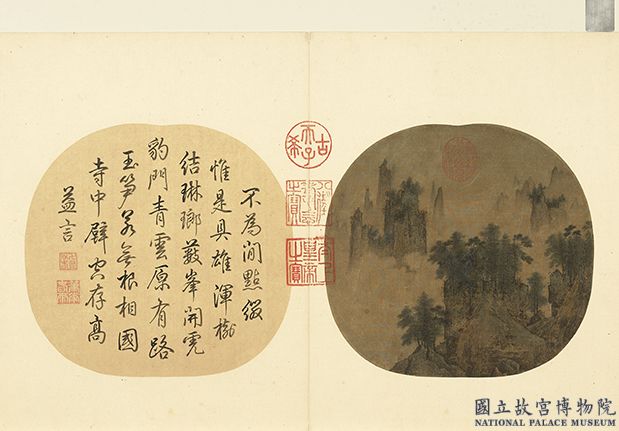 不為閒點綴
惟是具雄渾樹
結琳瑯藪峯開虎
豹門青雲原有路
玉笋若無根相國
寺中壁空存高
益言
古希天子
國立故宮博物院
NATIONAL PALACE MUSEUM